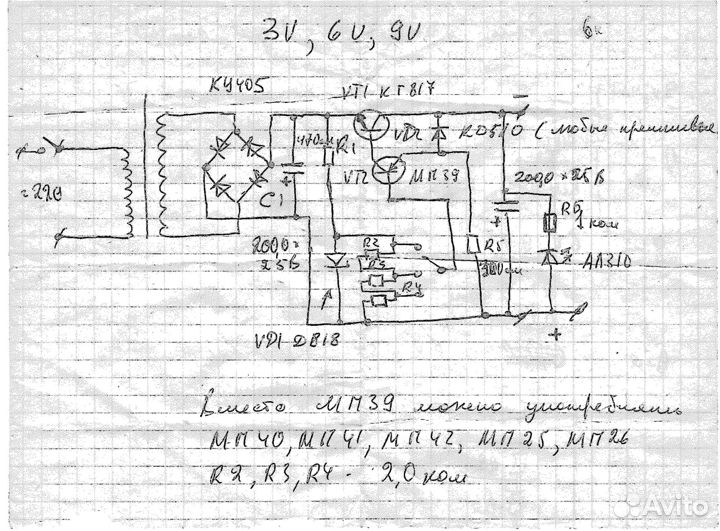 3V, 6V, 9V
КЦ405
VT1 КТ817
470 ом
R1
VD2
КД510 (любые кремниевые
VT2
МП39
≈220
C1
2000 × 25 В
R6
1 ком
2000 ×
25 В
R2
R3
R4
R5
АЛ310
VD1 Д818
−
+
Вместо МП39 можно употреблять
МП40, МП41, МП42, МП25, МП26
R2, R3, R4 - 2,0 ком
Avito